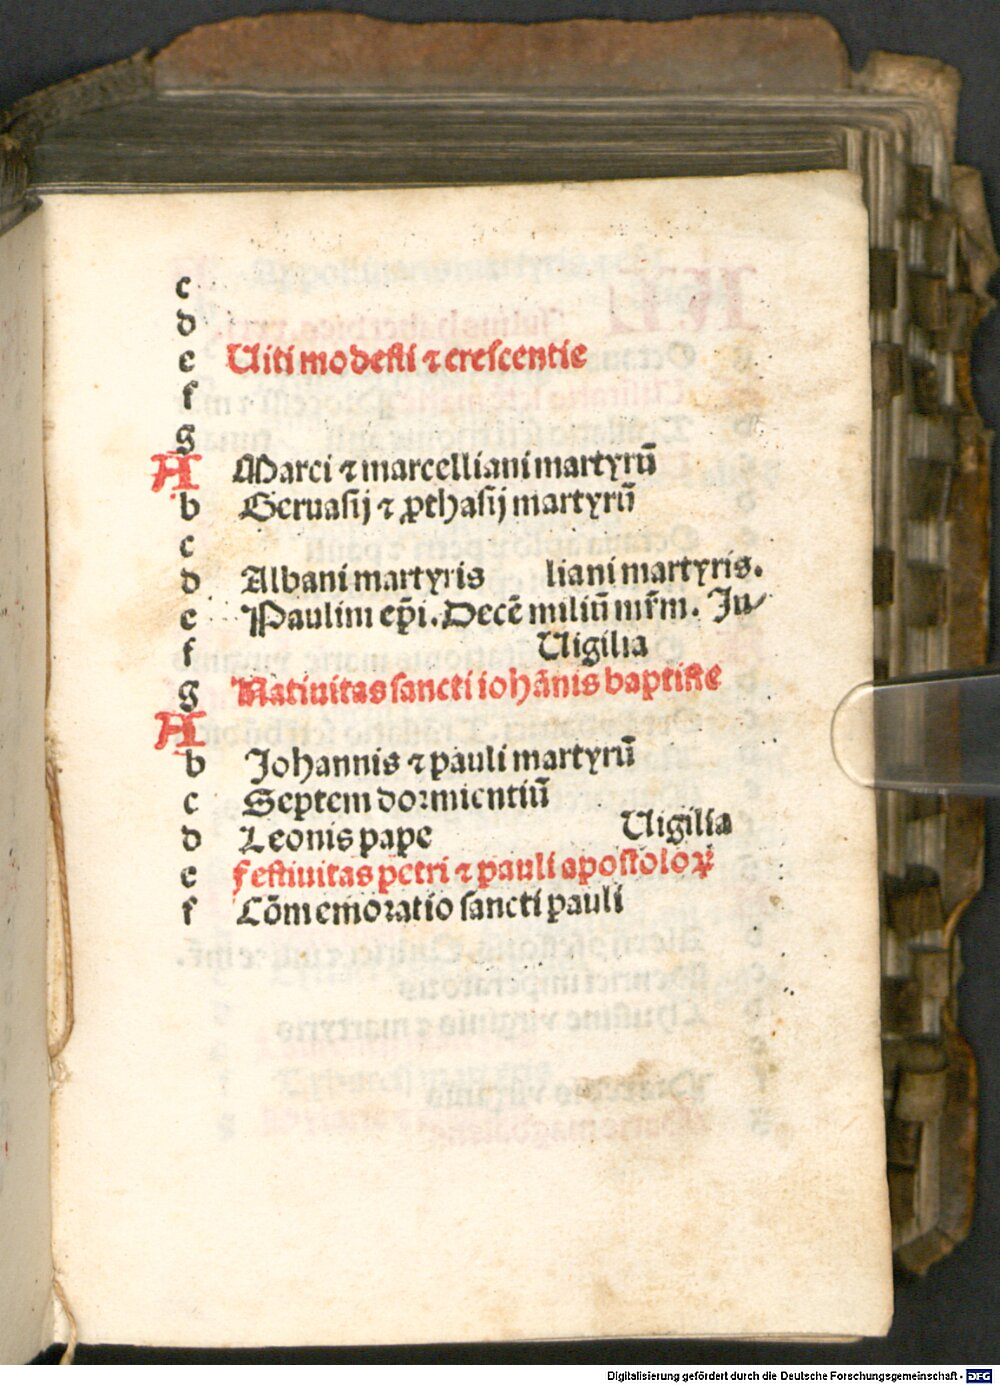 c
d
e Uiti modesti ⁊ crescentie
f
g
A Marci ⁊ marcelliani martyrū
b Geruasij ⁊ ꝓthasij martyrū
c
d Albani martyris liani martyris.
e Paulini ep̄i. Decē miliū mr̄m. Ju⸗
f Uigilia
g Natiuitas sancti iohānis baptiste
A
b Johannis ⁊ pauli martyrū
c Septem dormientiū
d Leonis pape Uigilia
e Festiuitas petri ⁊ pauli apostoloꝝ
f Cōmemoratio sancti pauli
Digitalisierung gefördert durch die Deutsche Forschungsgemeinschaft - DFG